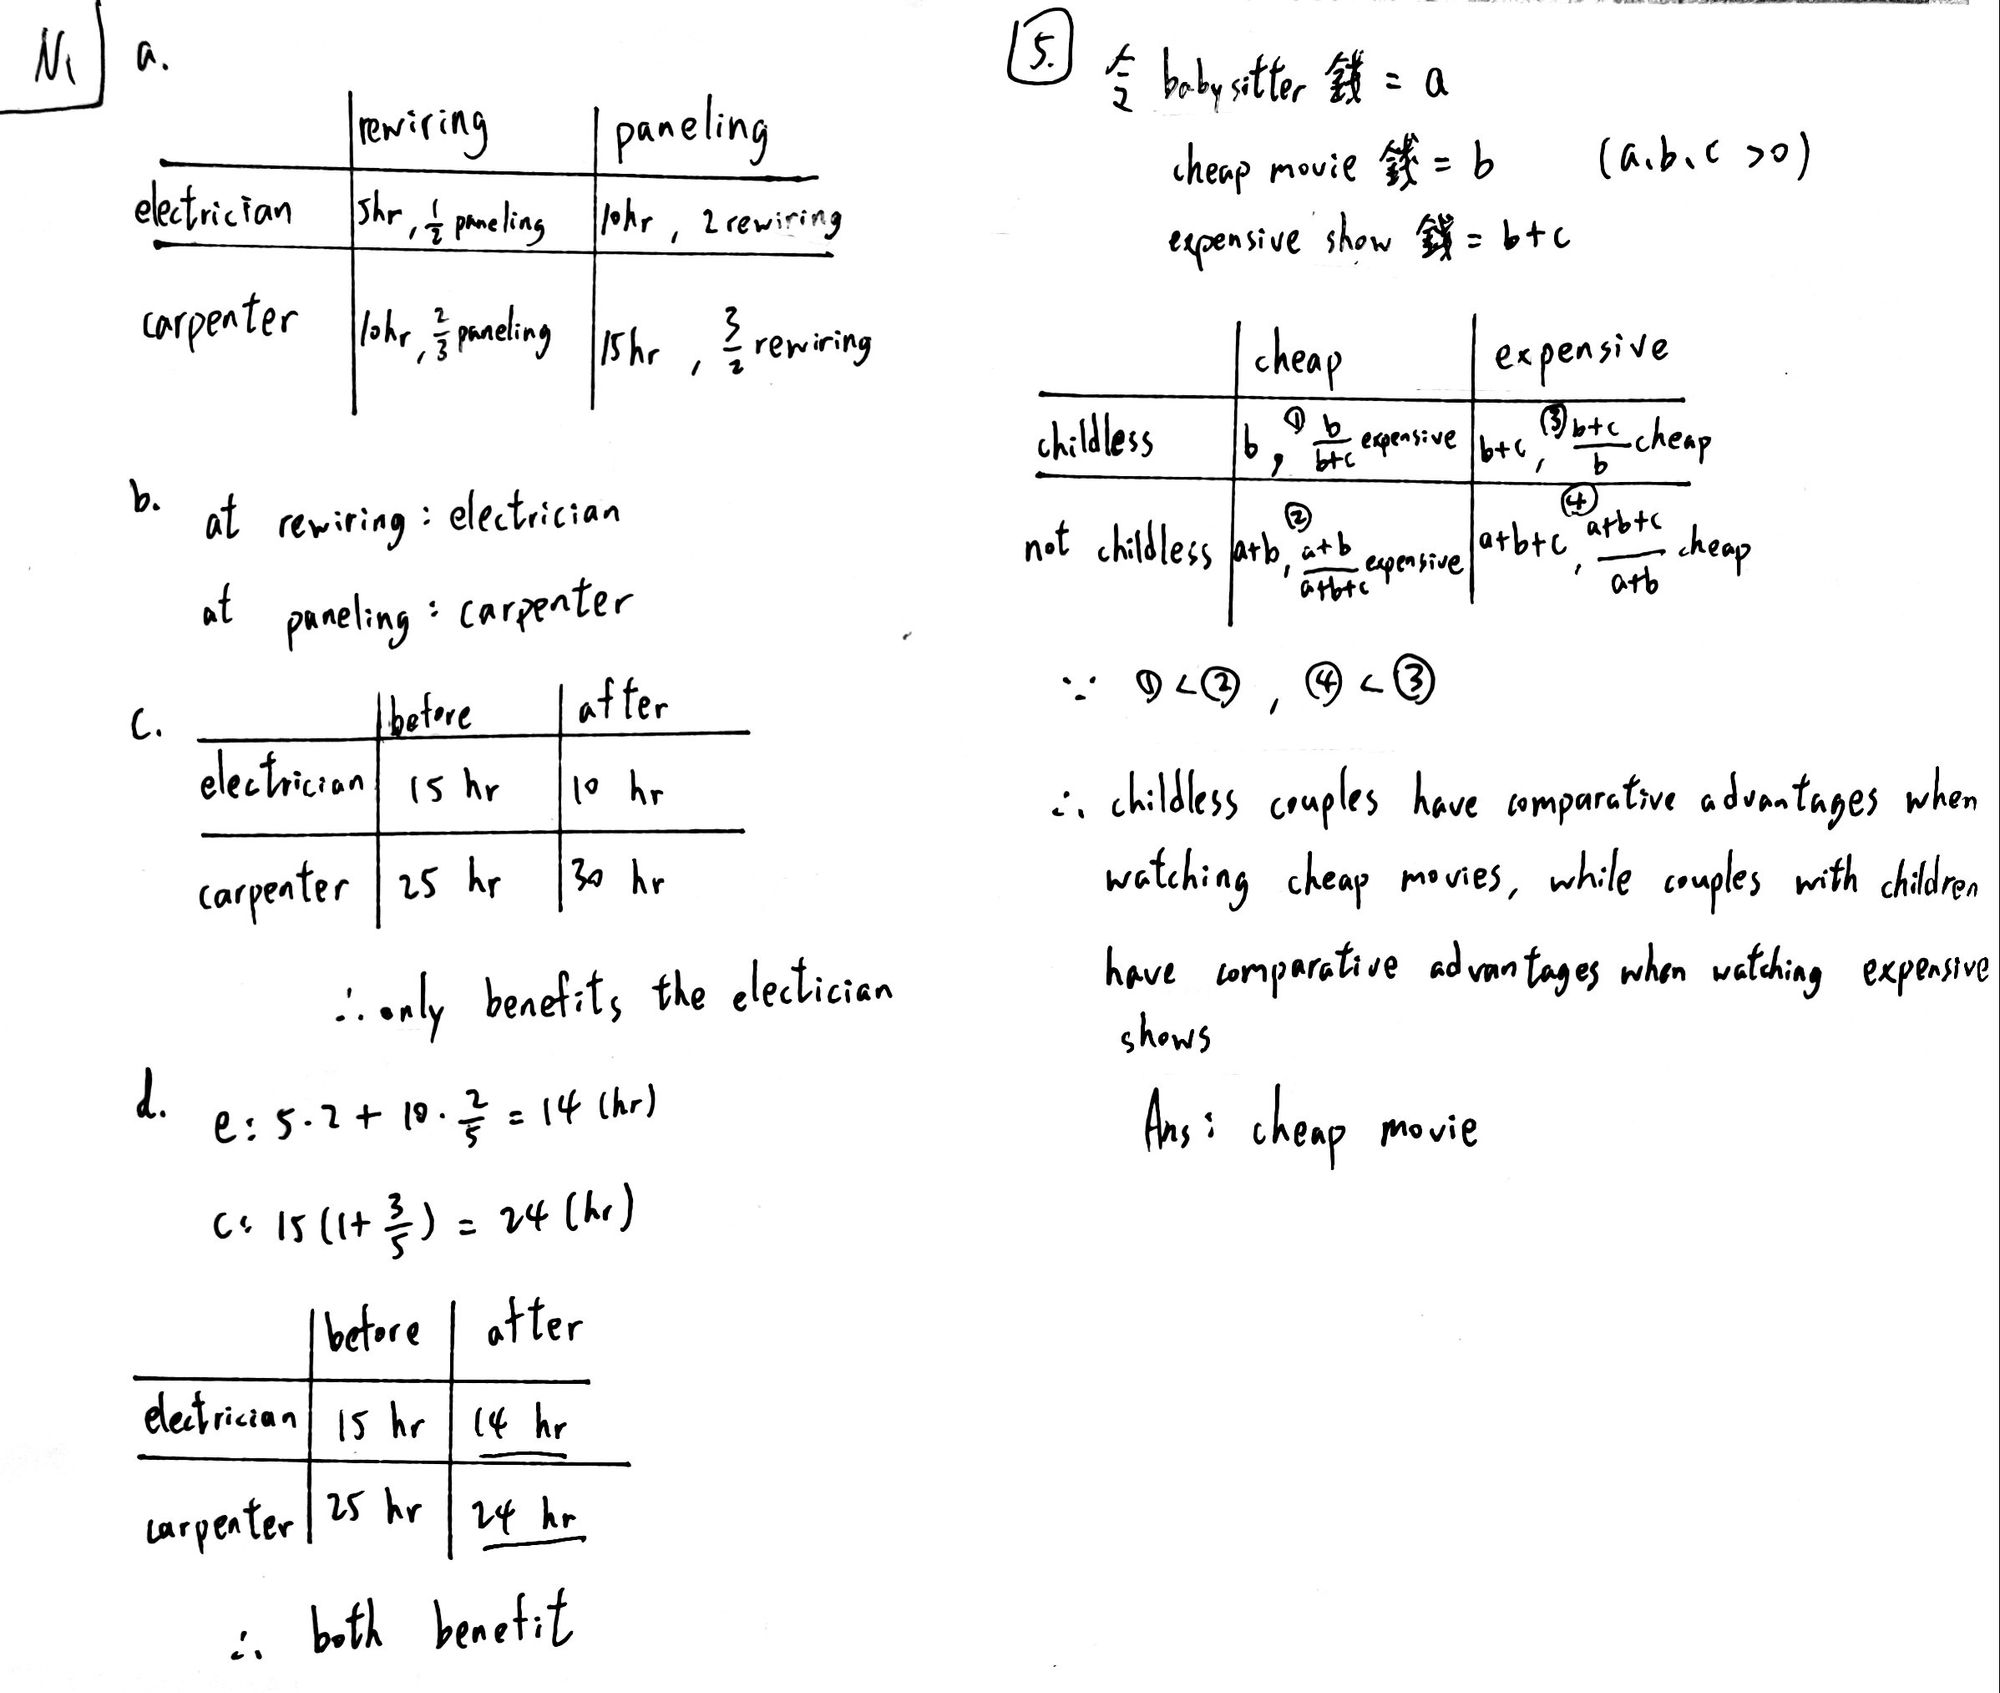 N1
a.
rewiring paneling
electrician 5hr, 1/2 paneling 10hr, 2 rewiring
carpenter 10hr, 2/3 paneling 15hr, 3/2 rewiring
b. at rewiring: electrician
at paneling: carpenter
c. before after
electrician 15 hr 10 hr
carpenter 25 hr 30 hr
∴ only benefits the electician
d. e: 5·2 + 10·2/5 = 14 (hr)
c: 15(1+3/5) = 24 (hr)
before after
electrician 15 hr 14 hr
carpenter 25 hr 24 hr
∴ both benefit
5. 令 babysitter 錢 = a
cheap movie 錢 = b (a、b、c >0)
expensive show 錢 = b+c
cheap expensive
childless b, ① b/(b+c) expensive b+c, ③ (b+c)/b cheap
not childless a+b, ② (a+b)/(a+b+c) expensive a+b+c, ④ (a+b+c)/(a+b) cheap
∵ ①<②, ④<③
∴ childless couples have comparative advantages when
watching cheap movies, while couples with children
have comparative advantages when watching expensive
shows
Ans: cheap movie